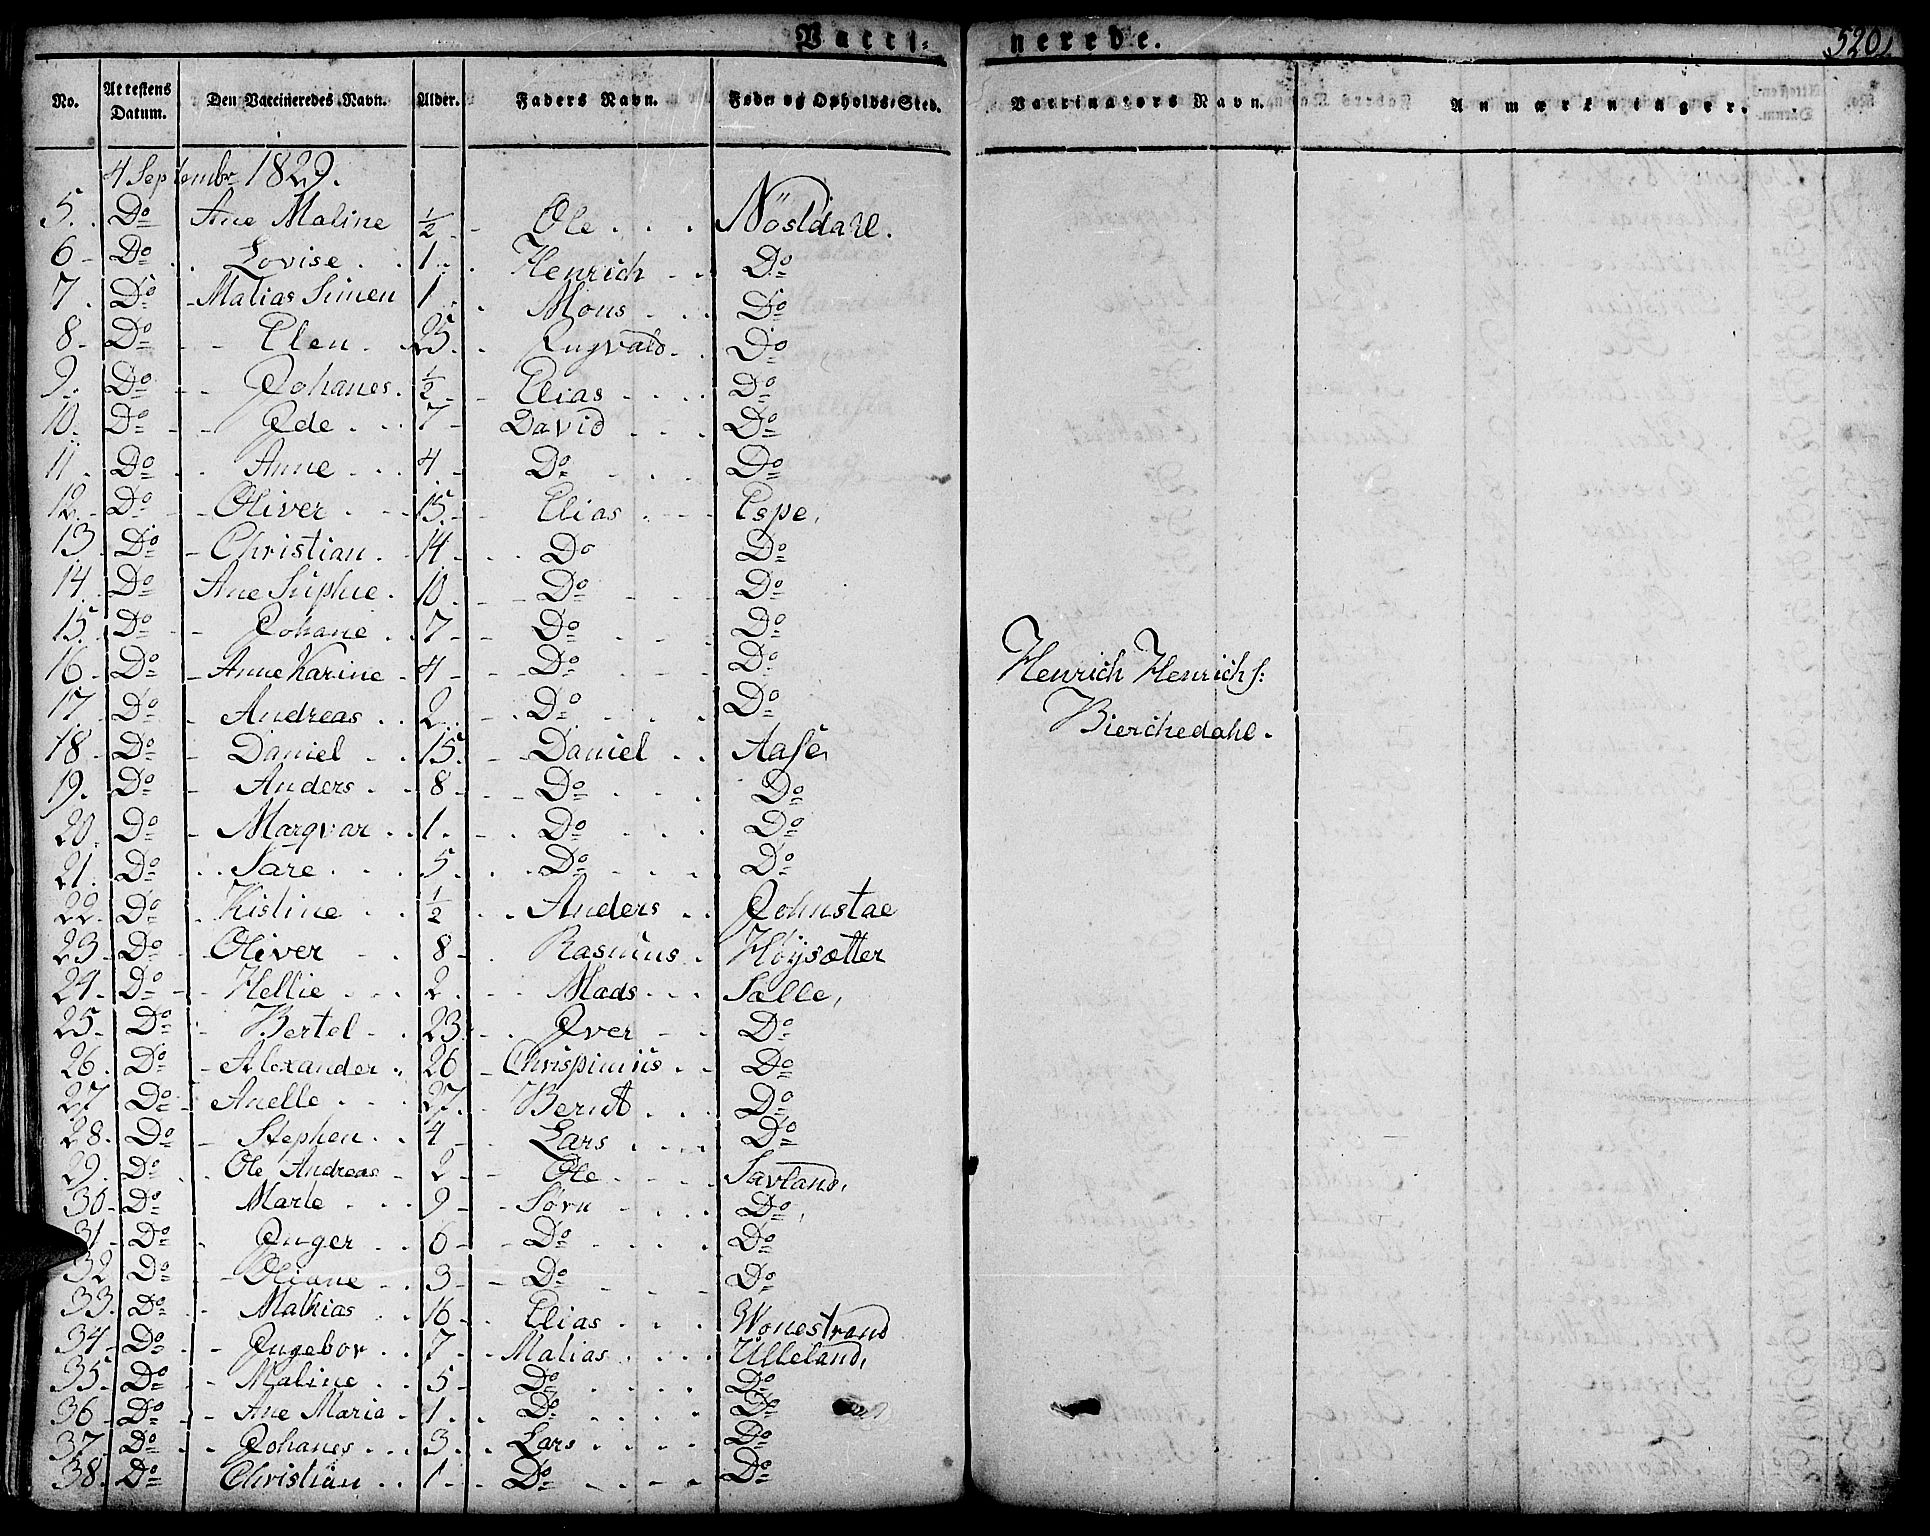 Vacci- nerede. 520,
No. Attestens Datum. Den Vaccineredes Navn. Alder. Faders Navn. Føde- og Opholds-Sted. Vaccinators Navn. Anmærkninger.
4 Septembr 1829.
5. Do Ane Maline ½ - Ole . . . Nösldahl.
6 - Do . . Lovise . . 1 . . Henrich . . Do
7. Do - Matias Simen 1 . Mons . . . Do
8 - Do - - Elen . . 25 . . Engvald . Do
9. Do - - Johanes . ½ - - Elias . . . . Do
10. Do - - Ede . . . 7 - David . . . Do
11. Do . . Anne . . . 4 - Do . - . . Do
12. - Do - - Oliver . - - 15 - - Elias . . - - Espe,
13. Do - Christian . - 14 - . . Do Do
14. Do - Ane Suphie . 10 . - - Do - - . Do
15. Do - - Johane . . 7 - - Do . . . Do
16 - Do - Anne Karine - 4 - - Do . . . Do
17. Do - Andreas . . 2 . - . Do . . . . Do
18. - Do - Daniel . . 15. - Daniel . . Aase,
19. Do - Anders . . 8 - - - Do . . . Do
20. Do - Marqvar . . 1. - . Do . . . Do
21. Do . . Sare . . . 5 . . . . Do . . . Do
22. - Do . Kistine . . ½ . . . Anders . . Johnstae
23 - Do - Oliver - . 8 - . Rasmus . Høysætter
24. - Do - - Hellie . . . 2 . . . Mads . . . Sælle,
25. Do - Bertel - . 23. . . Iver - - Do
26. Do - Alexander . 26 - Chrispinius . . Do
27 Do - Anelle . . . 27. - Bernt . . . Do
28. Do - Stephen . . 4 - - Lars . . . . Do
29. Do . . Ole Andreas - 2 - - Ole . . . . Sævland,
30 - Do Marte . . . 9 - - Sørn - . . . Do,
31 - Do . Inger . . 6 - - Do - . . . Do
32 Do - - Oliane . . 3 - - Do - . - - Do
33. Do . . Mathias 16 . Elias . . . Wonestrand
34 - Do . - Ingebor . . 7 - - Matias . . . . Ulleland,
35. Do - - Maline . . 5 - Do . . . . Do
36 - Do - - Ane Maria - 1 . . Do . . . . Do
37. - Do . . Johanes . . . 3. . . Lars . . . . Do
38. Do . Christian . . 1 - - Do - . - . Do
Henrich Henrichs:
Bierchedahl.